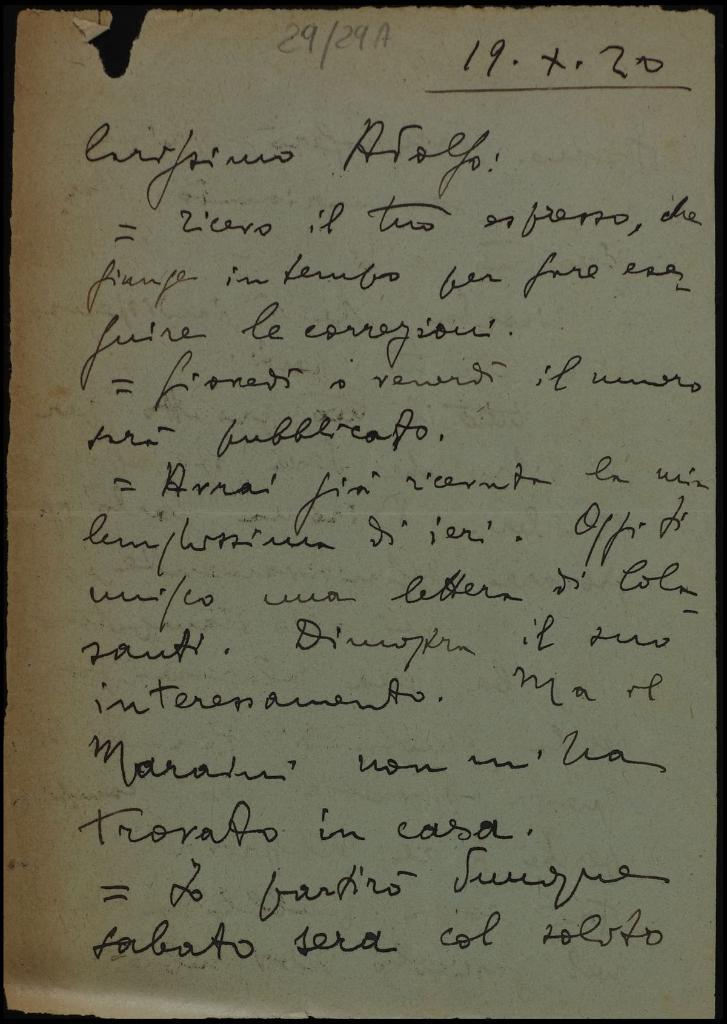 29/29A
19. X. 20
Carissimo Adolfo:
= ricevo il tuo espresso, che
giunge in tempo per fare ese-
guire le correzioni.
= Giovedì o venerdì il numero
sarà pubblicato.
= Avrai già ricevuta la mia
lunghissima di ieri. Oggi ti
unisco una lettera di Cola-
santi. Dimostra il suo
interessamento. Ma il
Maraini non m'ha
trovato in casa.
= Io partirò dunque
sabato sera col solito